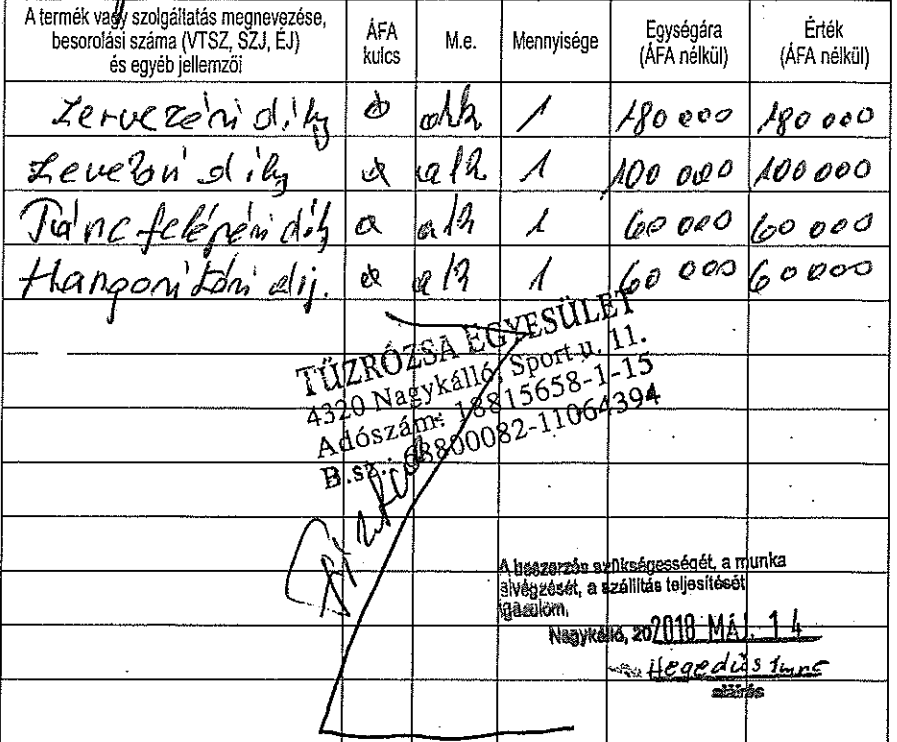 A termék vagy szolgáltatás megnevezése,
besorolási száma (VTSZ, SZJ, ÉJ)
és egyéb jellemzői
ÁFA
kulcs
M.e.
Mennyisége
Egységára
(ÁFA nélkül)
Érték
(ÁFA nélkül)
díj 1 180 000 180 000
díj 1 100 000 100 000
díj a alk 1 60 000 60 000
díj. 1 60 000 60 000
TŰZRÓZSA EGYESÜLET
4320 Nagykálló, Sport u. 11.
Adószám: 18815658-1-15
B.sz.: 68800082-11064394
A beszerzés szükségességét, a munka
elvégzését, a szállítás teljesítését
igazolom.
Nagykálló, 202018 MÁJ. 14
Hegedűs Imre
aláírás